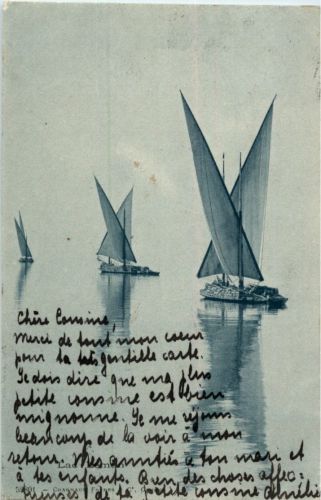 Chère Cousine,
Merci de tout mon coeur
pour ta très gentille carte.
Je dois dire que ma plus
petite cousine est bien
mignonne. Je me réjouis
beaucoup de la voir à mon
retour. Mes amitiés à ton mari et
à tes enfants. Bien des choses affec-
tueuses de ta petite cousine